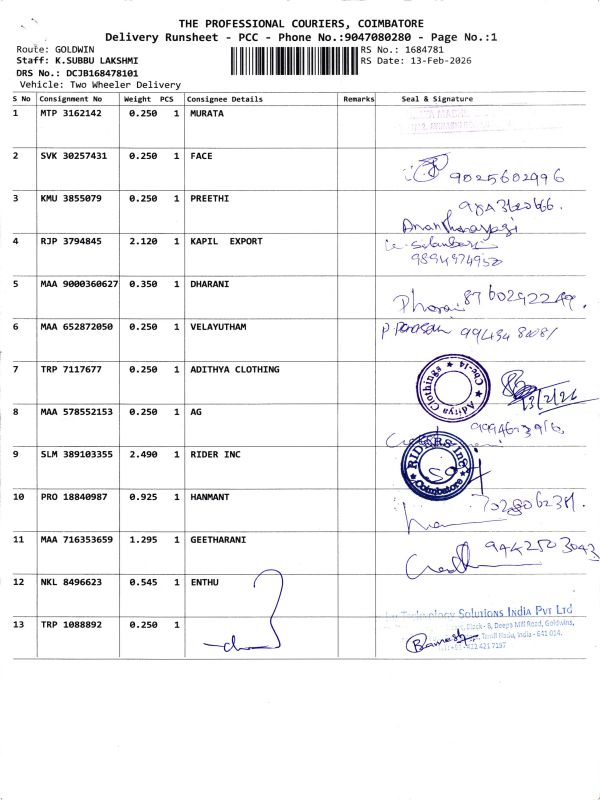 THE PROFESSIONAL COURIERS, COIMBATORE
Delivery Runsheet - PCC - Phone No.:9047080280 - Page No.:1
Route: GOLDWIN
RS No.: 1684781
Staff: K.SUBBU LAKSHMI
RS Date: 13-Feb-2026
DRS No.: DCJB168478101
Vehicle: Two Wheeler Delivery
S No Consignment No Weight PCS Consignee Details Remarks Seal & Signature
1 MTP 3162142 0.250 1 MURATA
2 SVK 30257431 0.250 1 FACE
9025602996
3 KMU 3855079 0.250 1 PREETHI
4 RJP 3794845 2.120 1 KAPIL EXPORT
9894974950
5 MAA 9000360627 0.350 1 DHARANI
6 MAA 652872050 0.250 1 VELAYUTHAM
7 TRP 7117677 0.250 1 ADITHYA CLOTHING
Aditya Clothings Cbe-14
13/2/26
8 MAA 578552153 0.250 1 AG
9 SLM 389103355 2.490 1 RIDER INC
RIDERS Inc Coimbatore
10 PRO 18840987 0.925 1 HANMANT
11 MAA 716353659 1.295 1 GEETHARANI
9442503043
12 NKL 8496623 0.545 1 ENTHU
Technology Solutions India Pvt Ltd
Block - 8, Deepa Mill Road, Goldwins,
Tamil Nadu, India - 641 014.
13 TRP 1088892 0.250 1
Ramesh
422 421 7197